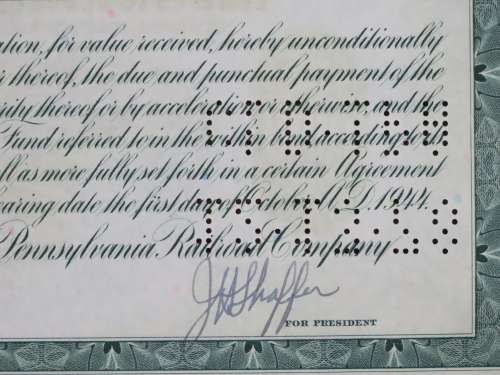 ation, for value received, hereby unconditionally
r thereof, the due and punctual payment of the
rity thereof or by acceleration or otherwise, and the
Fund referred to in the within bond according to
ll as more fully set forth in a certain Agreement
earing date the first day of October A.D. 1944.
Pennsylvania Railroad Company
JHShaffer
FOR PRESIDENT